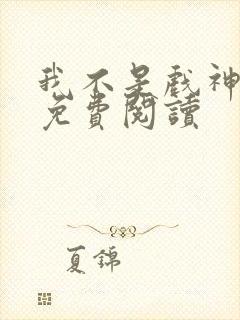 我不是戲神
免費閱讀
夏錦